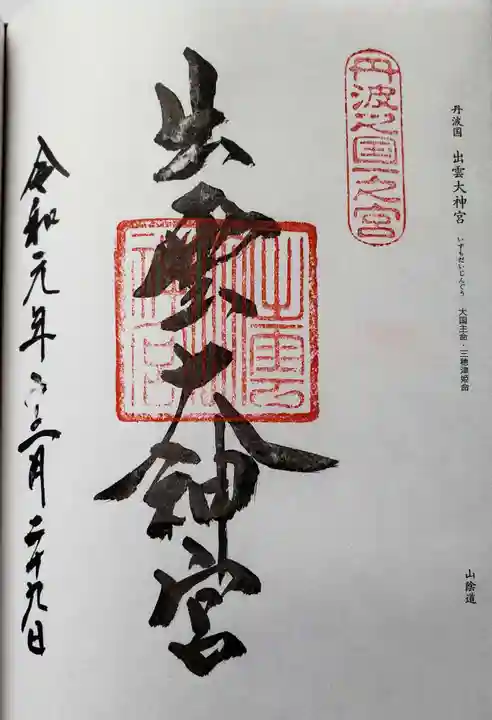 丹波国 出雲大神宮 いずもだいじんぐう 大国主命・三穂津姫命
山陰道
丹波之国一之宮
出雲大神宮
令和元年 月二十九日